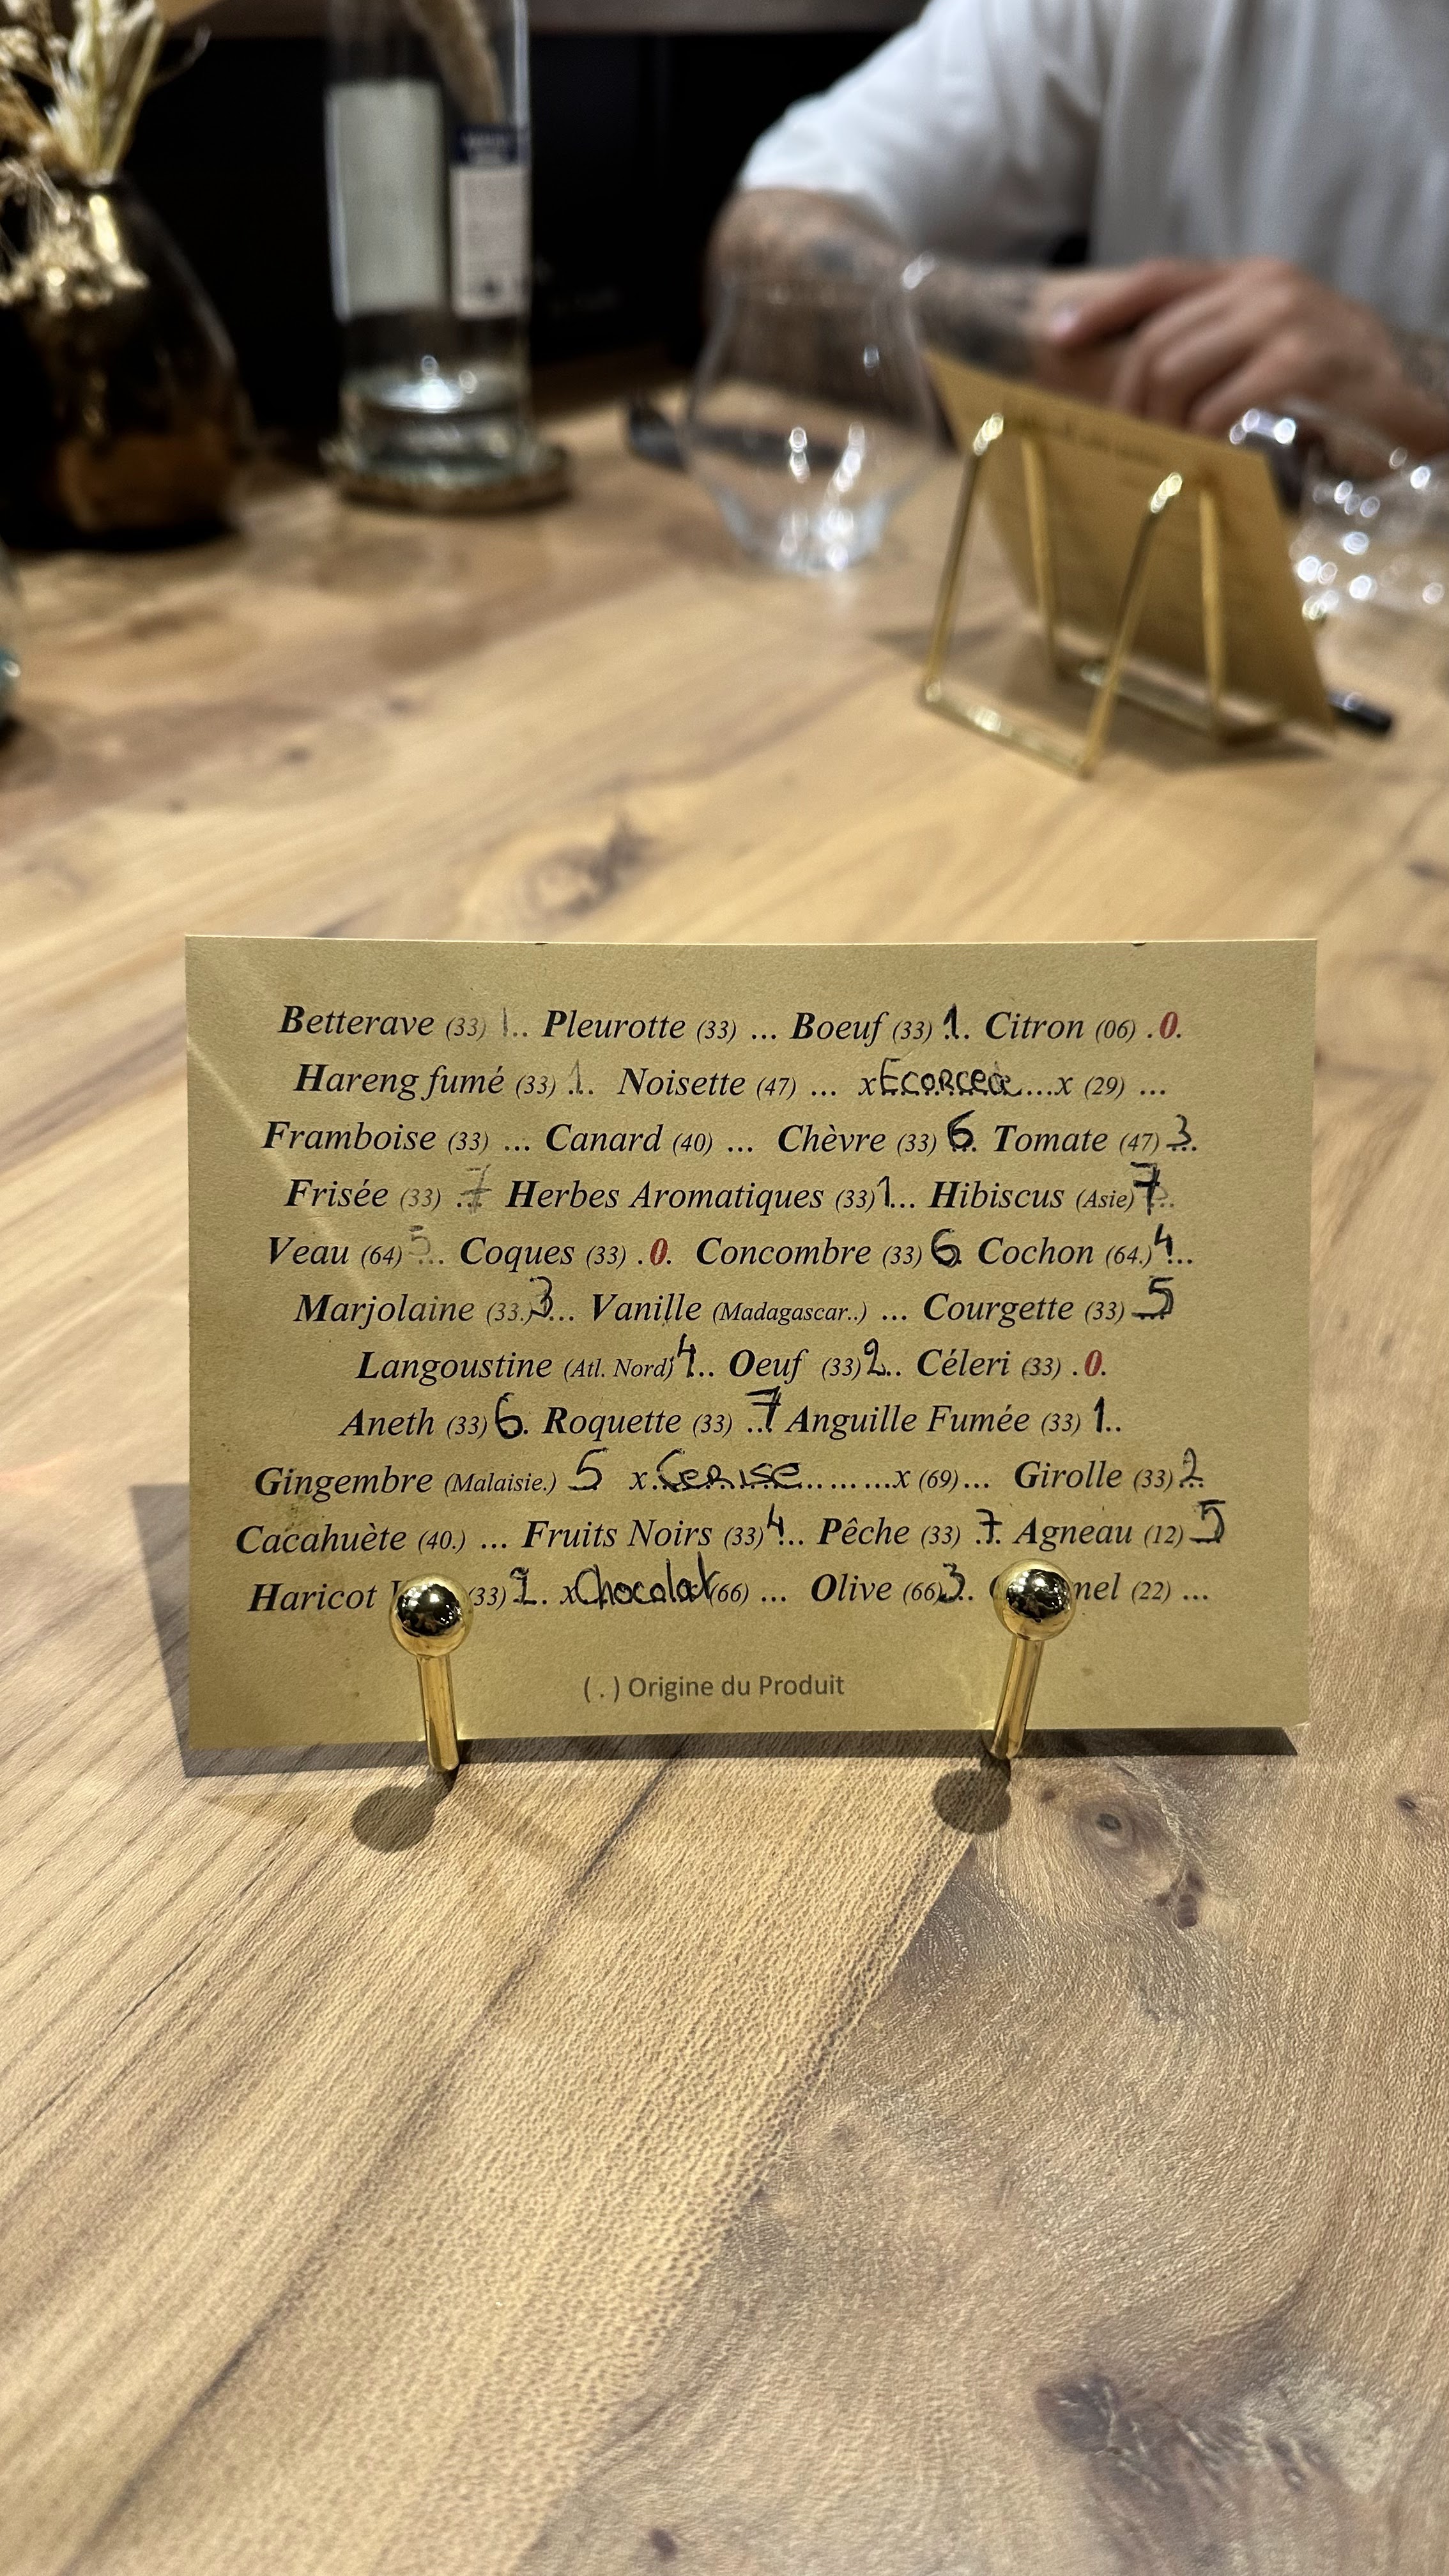 Betterave (33) 1.. Pleurotte (33) ... Boeuf (33) 1. Citron (06) .0.
Hareng fumé (33) 1. Noisette (47) ... x Ecorce ...x (29) ...
Framboise (33) ... Canard (40) ... Chèvre (33) 6. Tomate (47) 3.
Frisée (33) .7 Herbes Aromatiques (33) 1... Hibiscus (Asie) 7..
Veau (64) 5.. Coques (33) .0. Concombre (33) 6. Cochon (64.) 4...
Marjolaine (33.) 3... Vanille (Madagascar..) ... Courgette (33) 5
Langoustine (Atl. Nord) 4.. Oeuf (33) 2.. Céleri (33) .0.
Aneth (33) 6. Roquette (33) ..7 Anguille Fumée (33) 1..
Gingembre (Malaisie.) 5 x.Cerise.........x (69)... Girolle (33) 2
Cacahuète (40.) ... Fruits Noirs (33) 4.. Pêche (33) .7. Agneau (12) 5
Haricot (33) 2. xChocolat (66) ... Olive (66) 3.. (22) ...
( . ) Origine du Produit